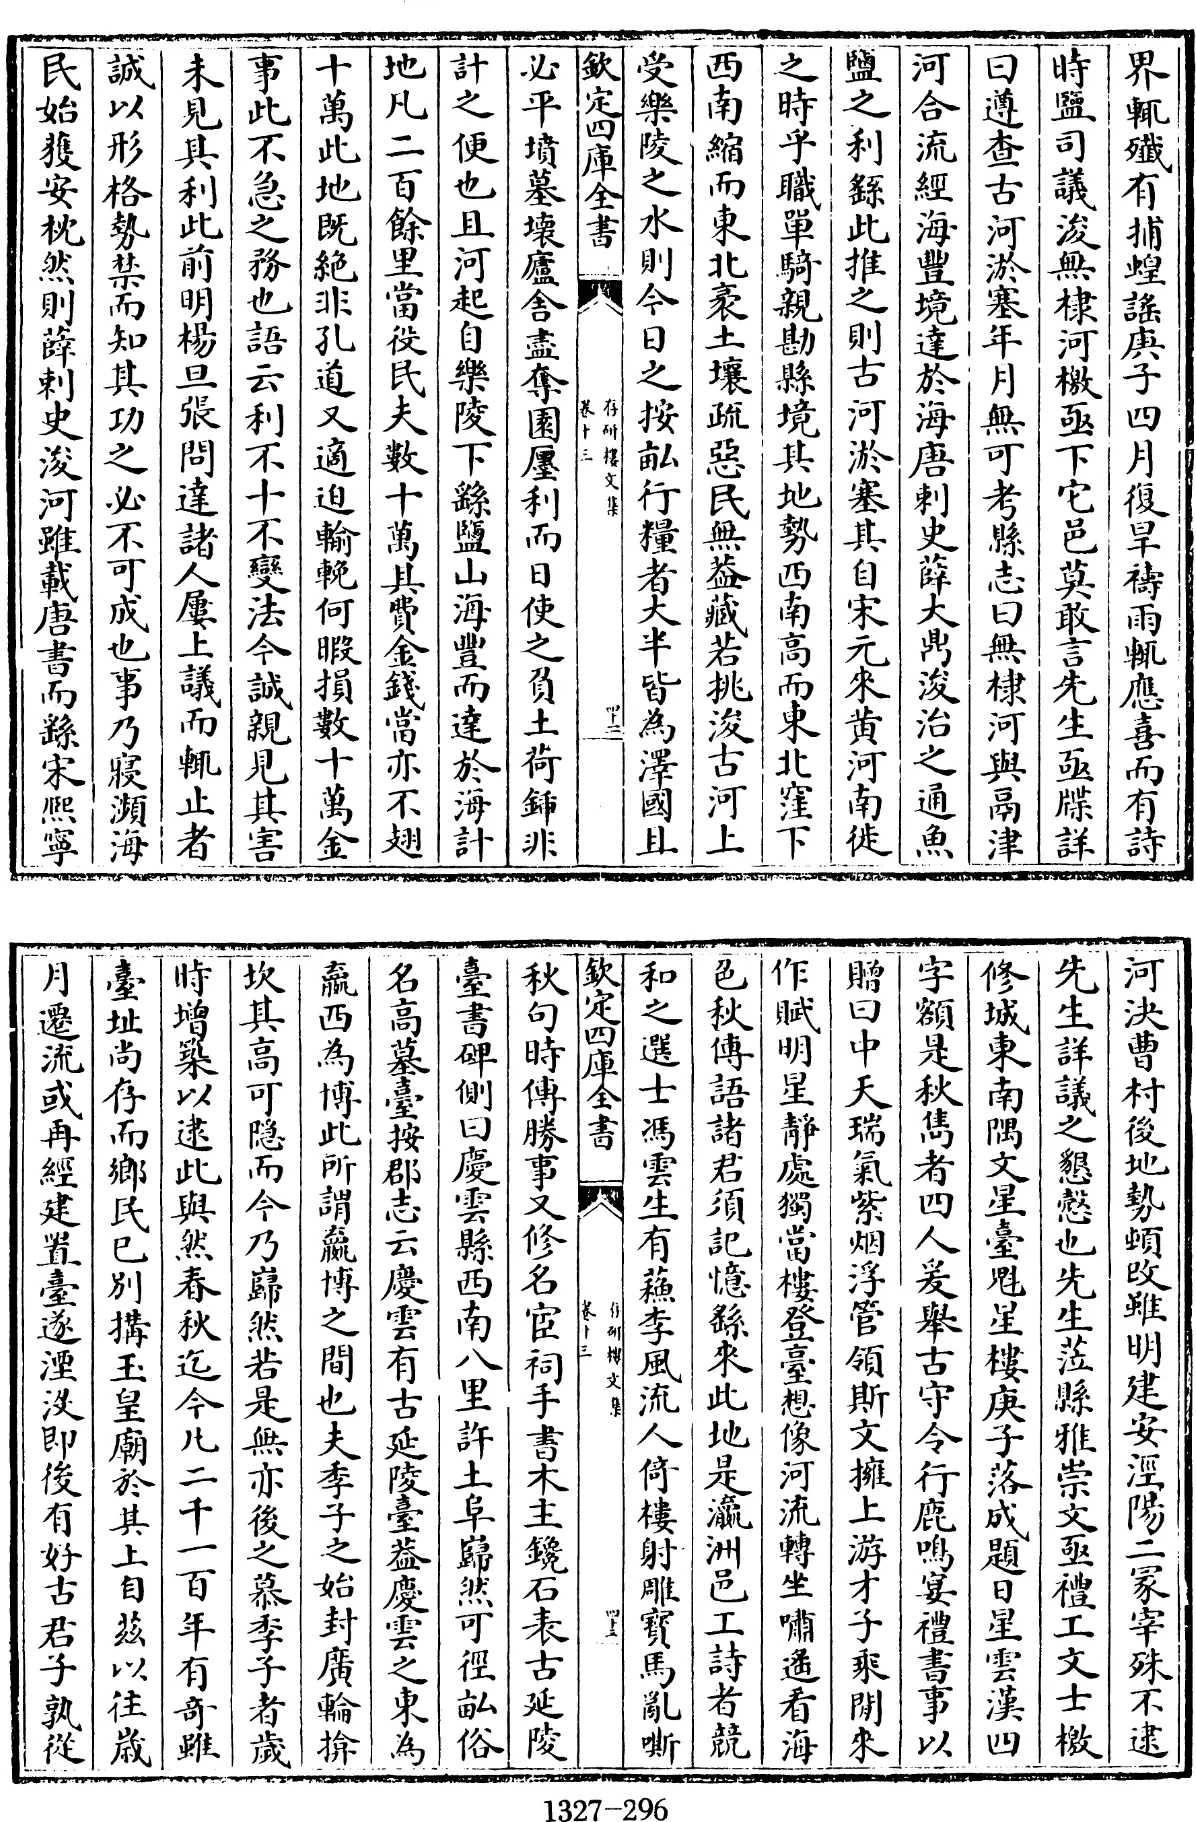 界輒殲有捕蝗謡庚子四月復旱禱雨輒應喜而有詩
時鹽司議浚無棣河檄亟下它邑莫敢言先生亟牒詳
曰遵查古河淤塞年月無可考縣志曰無棣河與鬲津
河合流經海豐境達於海唐刺史薛大鼎浚治之通魚
鹽之利繇此推之則古河淤塞其自宋元來黄河南徙
之時乎職單騎親勘縣境其地勢西南高而東北窪下
西南縮而東北袤土壤疏惡民無葢藏若挑浚古河上
受樂陵之水則今日之按畝行糧者大半皆為澤國且
欽定四庫全書
存研樓文集
卷十三
四十二
必平墳墓壞廬舍盡奪園廛利而日使之負土荷鍤非
計之便也且河起自樂陵下繇鹽山海豐而達於海計
地凡二百餘里當役民夫數十萬其費金錢當亦不翅
十萬此地既絶非孔道又適迫輸輓何暇損數十萬金
事此不急之務也語云利不十不變法今誠親見其害
未見其利此前明楊旦張問達諸人屢上議而輒止者
誠以形格勢禁而知其功之必不可成也事乃寢瀕海
民始獲安枕然則薛刺史浚河雖載唐書而繇宋熙寧
河決曹村後地勢頓改雖明建安涇陽二冢宰殊不逮
先生詳議之懇慤也先生蒞縣雅崇文亟禮工文士檄
修城東南隅文星臺魁星樓庚子落成題曰星雲漢四
字額是秋雋者四人爰舉古守令行鹿鳴宴禮書事以
贈曰中天瑞氣紫烟浮管領斯文擁上游才子乘閒來
作賦明星靜處獨當樓登臺想像河流轉坐嘯遥看海
色秋傳語諸君須記憶繇來此地是瀛洲邑工詩者競
和之選士馮雲生有蘓李風流人倚樓射雕寶馬亂嘶
欽定四庫全書
存研樓文集
卷十三
四十三
秋句時傳勝事又修名宦祠手書木主鑱石表古延陵
臺書碑側曰慶雲縣西南八里許土阜巋然可徑畝俗
名高墓臺按郡志云慶雲有古延陵臺葢慶雲之東為
嬴西為博此所謂嬴博之間也夫季子之始封廣輪揜
坎其高可隐而今乃巋然若是無亦後之慕季子者歲
時增築以逮此與然春秋迄今凡二千一百年有奇雖
臺址尚存而鄉民已別搆玉皇廟於其上自兹以往歲
月遷流或再經建置臺遂湮沒即後有好古君子孰從
1327-296